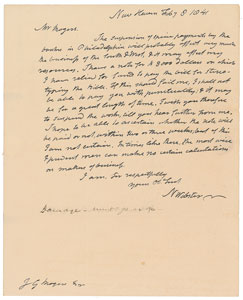 New Haven Feby 8 1841
Mr Moger
The suspension of specie payments by the
banks in Philadelphia will probably affect very much
the business of the South & West, & it may affect my
resources. I have a note for $ 800 dollars on which
I have relied for funds to pay the bill for Stereo-
typing the Bible. If this should fail me, I shall not
be able to pay you with punctuality, & it may
be for a great length of time. I wish you therefore
to suspend the work, till you hear further from me,
I hope to be able to ascertain whether the note will
be paid or not within two or three weeks, but of this
I am not certain. In times like these, the most wise
& prudent men can make no certain calculations
on matters of business.
I am, Sir, respectfully
Your Ob Servt
N Webster
J G Moger Esq